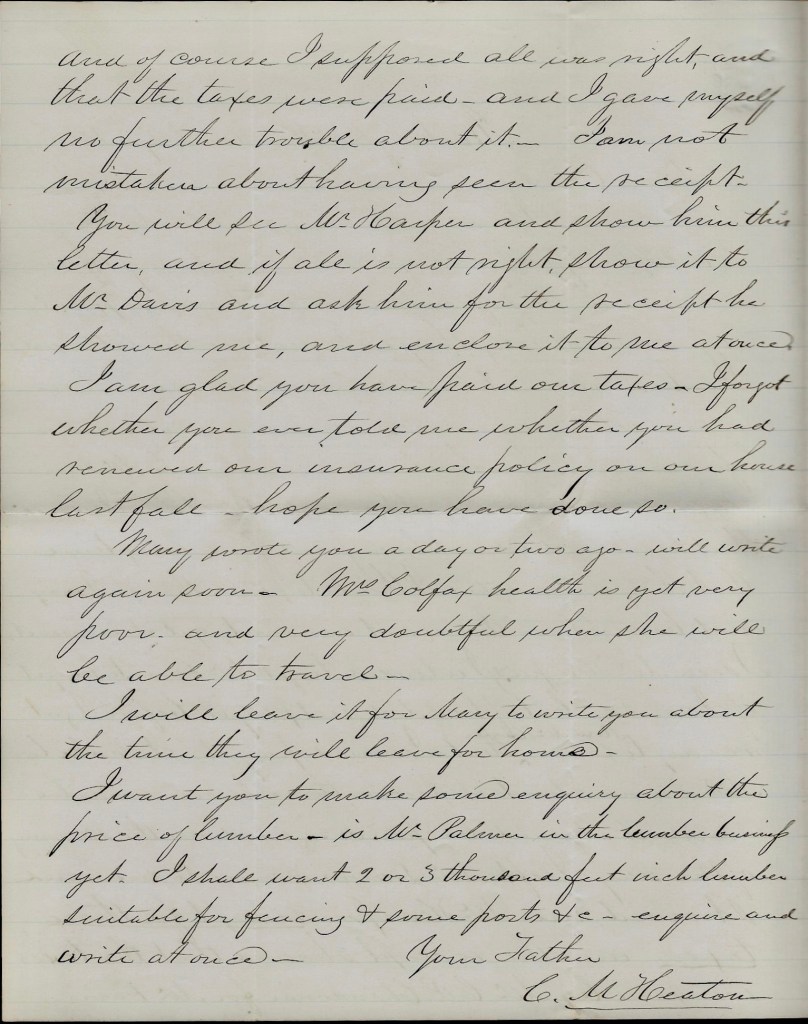 and of course I supposed all was right, and
that the taxes were paid - and I gave myself
no further trouble about it. - I am not
mistaken about having seen the receipt -
You will see Mr. Harper and show him this
letter, and if all is not right, show it to
Mr. Davis and ask him for the receipt he
showed me, and enclose it to me at once.
I am glad you have paid our taxes - I forgot
whether you ever told me whether you had
renewed our insurance policy on our house
last fall - hope you have done so.
Mary wrote you a day or two ago - will write
again soon - Mrs Colfax health is yet very
poor - and very doubtful when she will
be able to travel -
I will leave it for Mary to write you about
the time they will leave for home -
I want you to make some enquiry about the
price of lumber - is Mr. Palmer in the lumber business
yet - I shall want 2 or 3 thousand feet inch lumber
suitable for fencing & some posts &c - enquire and
write at once -
Your Father
C. M Heaton